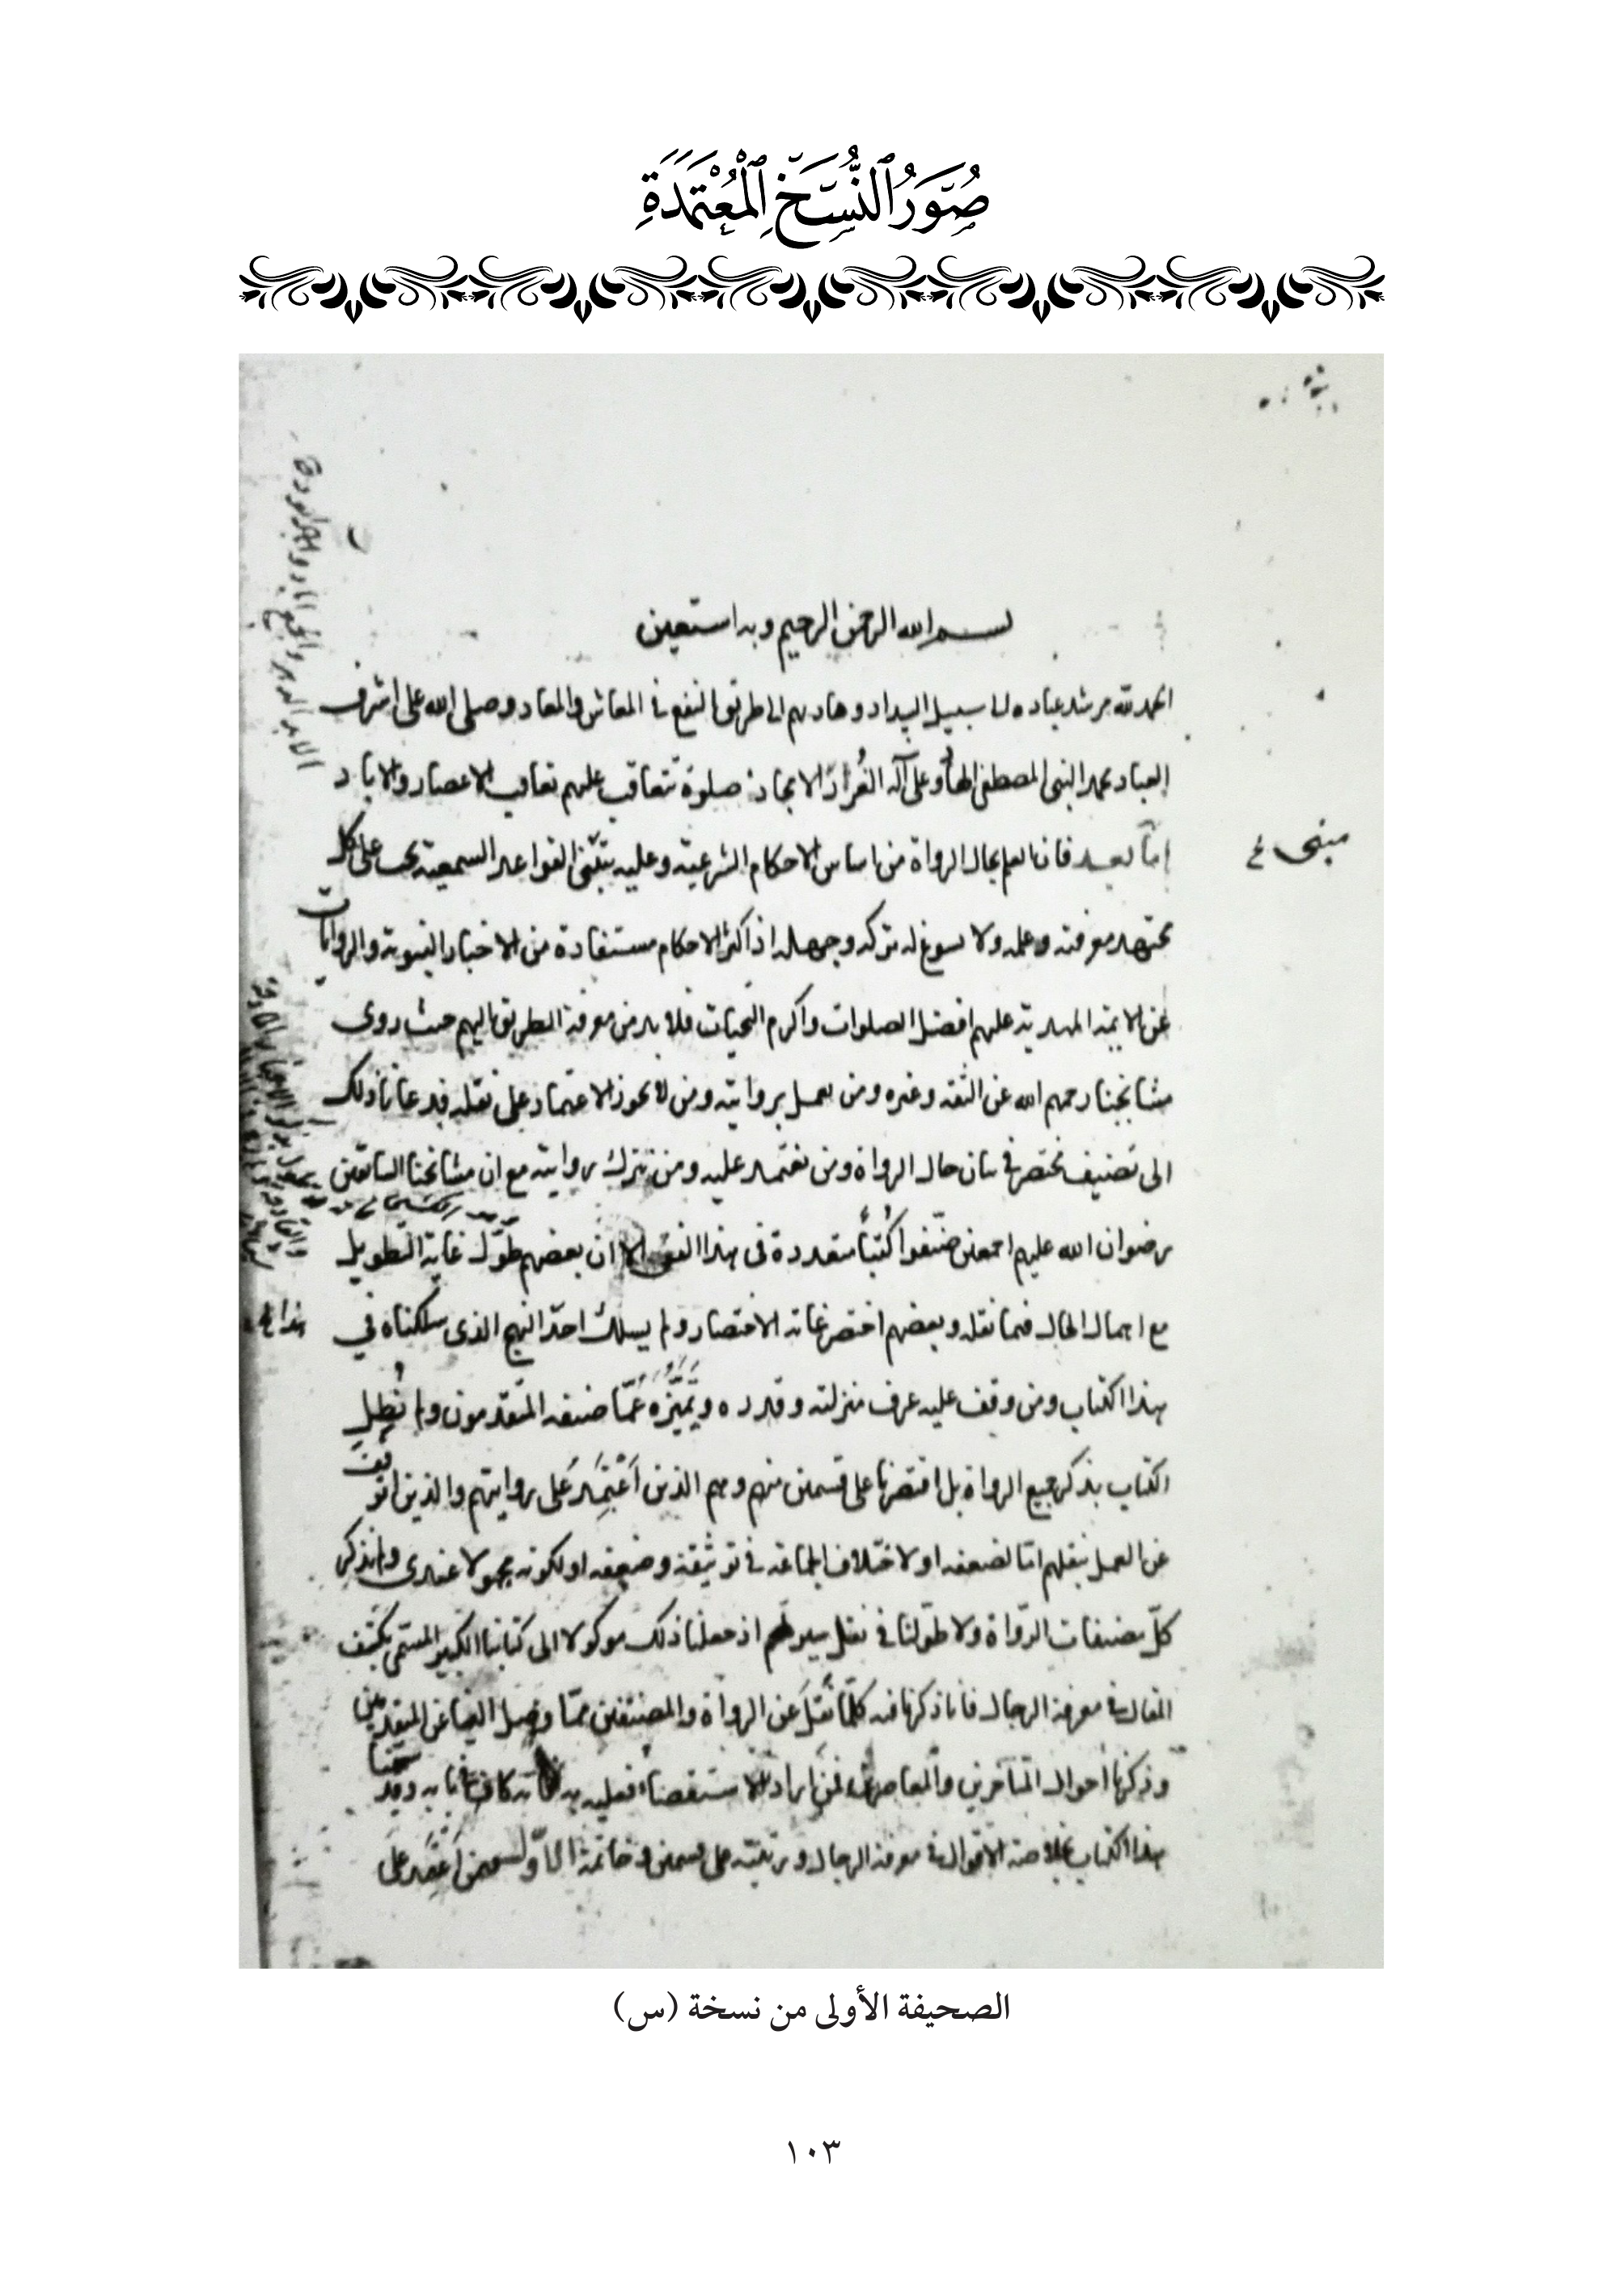 صُوَرُ ٱلنُّسَخِ ٱلْمُعْتَمَدَةِ
بسم الله الرحمن الرحيم وبه استعين
الحمد لله مرشد عباده الى سبيل السداد وهاديهم الى طريق النفع في المعاش والمعاد وصلى الله على اشرف
العباد محمد النبي المصطفى الهاد وعلى آله الغُرّ الامجاد صلوة تتعاقب عليهم تعاقب الاعصار والاباد
امّا بعد فان العلم بحال الرواة من اساس الاحكام الشرعية وعليه يبتنى القواعد السمعية يجب على كل
مجتهد معرفته وعلمه ولا يسوغ له تركه وجهله اذ اكثر الاحكام مستفادة من الاخبار النبوية والروايات
عن الائمة المهدية عليهم افضل الصلوات واكرم التحيات فلا بد من معرفة الطريق اليهم حيث روى
مشايخنا رحمهم الله عن الثقة وغيره ومن يعمل بروايته ومن لا يجوز الاعتماد على نقله فدعانا ذلك
الى تصنيف مختصر في بيان حال الرواة ومن يعتمد عليه ومن تترك روايته مع ان مشايخنا السابقين
رضوان الله عليهم اجمعين صنّفوا كُتُباً متعددة في هذا الفن الا ان بعضهم طوّل غاية التطويل
مع اجمال الحال فيما نقله وبعضهم اختصر غاية الاختصار ولم يسلك احدٌ النهج الذى سلكناه في
هذا الكتاب ومن وقف عليه عرف منزلته وقدره وتَمَيُّزَهُ عمّا صنفه المتقدمون ولم نُطِل
الكتاب بذكر جميع الرواة بل اقتصرنا على قسمين منهم وهم الذين اَعْتَمِدُ على روايتهم والذين اتوقف
عن العمل بنقلهم امّا لضعفه او لاختلاف الجماعة في توثيقه وضعفه او لكونه مجهولا عندى ولم نذكر
كلّ مصنفات الرّواة ولا طوّلنا في نقل سيرتهم اذ جعلنا ذلك موكولا الى كتابنا الكبير المسمّى بكشف
المقال في معرفة الرجال فانا ذكرنا فيه كلّما نُقِلَ عن الرواة والمصنّفين ممّا وصل الينا عن المتقدمين
وذكرنا احوال المتأخرين والمعاصرين فمن اراد الاستقصاء فعليه به فانه كاف في بابه وقد سمّينا
هذا الكتاب بخلاصة الاقوال في معرفة الرجال ورتبته على قسمين وخاتمة الاوّل فيمن اَعْتَمِدُ على
الصحيفة الأولى من نسخة (س)
١٠٣